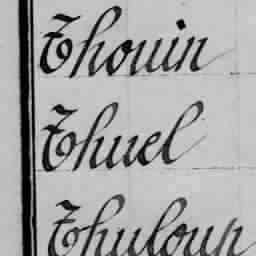 Thouin
Thuel
Thuloup